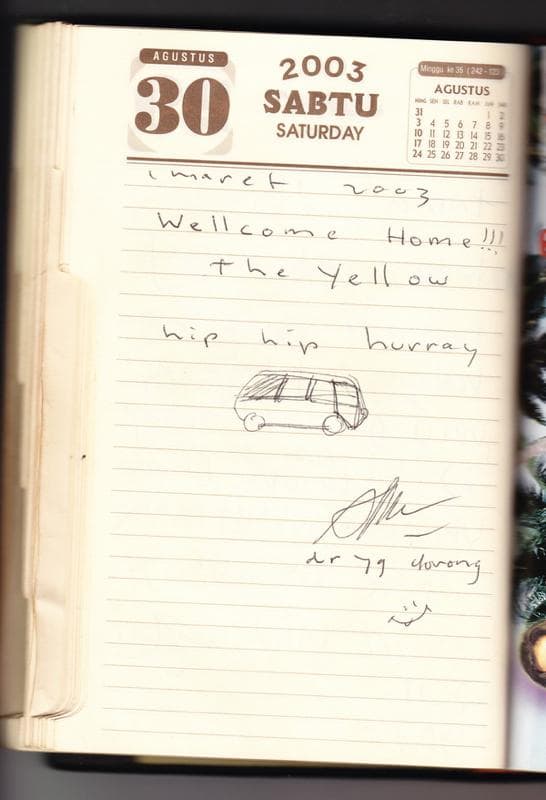 AGUSTUS
30
2003
SABTU
SATURDAY
Minggu ke 35 (242 - 123)
AGUSTUS
MING SEN SEL RAB KAM JUM SAB
31 1 2
3 4 5 6 7 8 9
10 11 12 13 14 15 16
17 18 19 20 21 22 23
24 25 26 27 28 29 30
1 maret 2003
Wellcome Home!!!
the Yellow
hip hip hurray
dr yg dorong